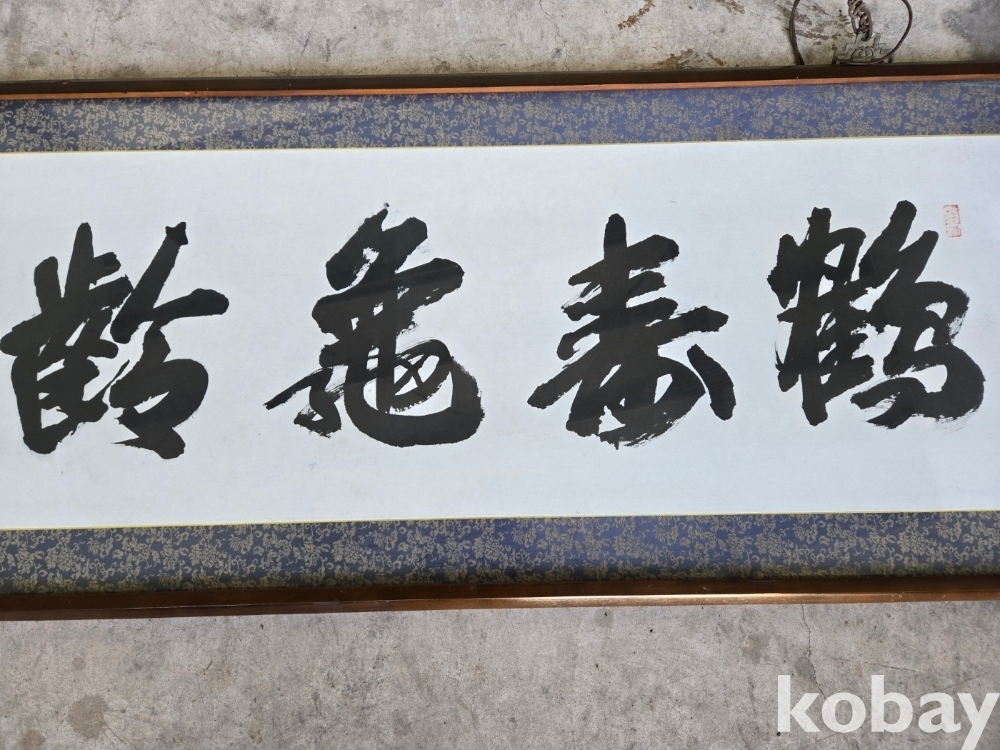 鶴壽龜齡
kobay